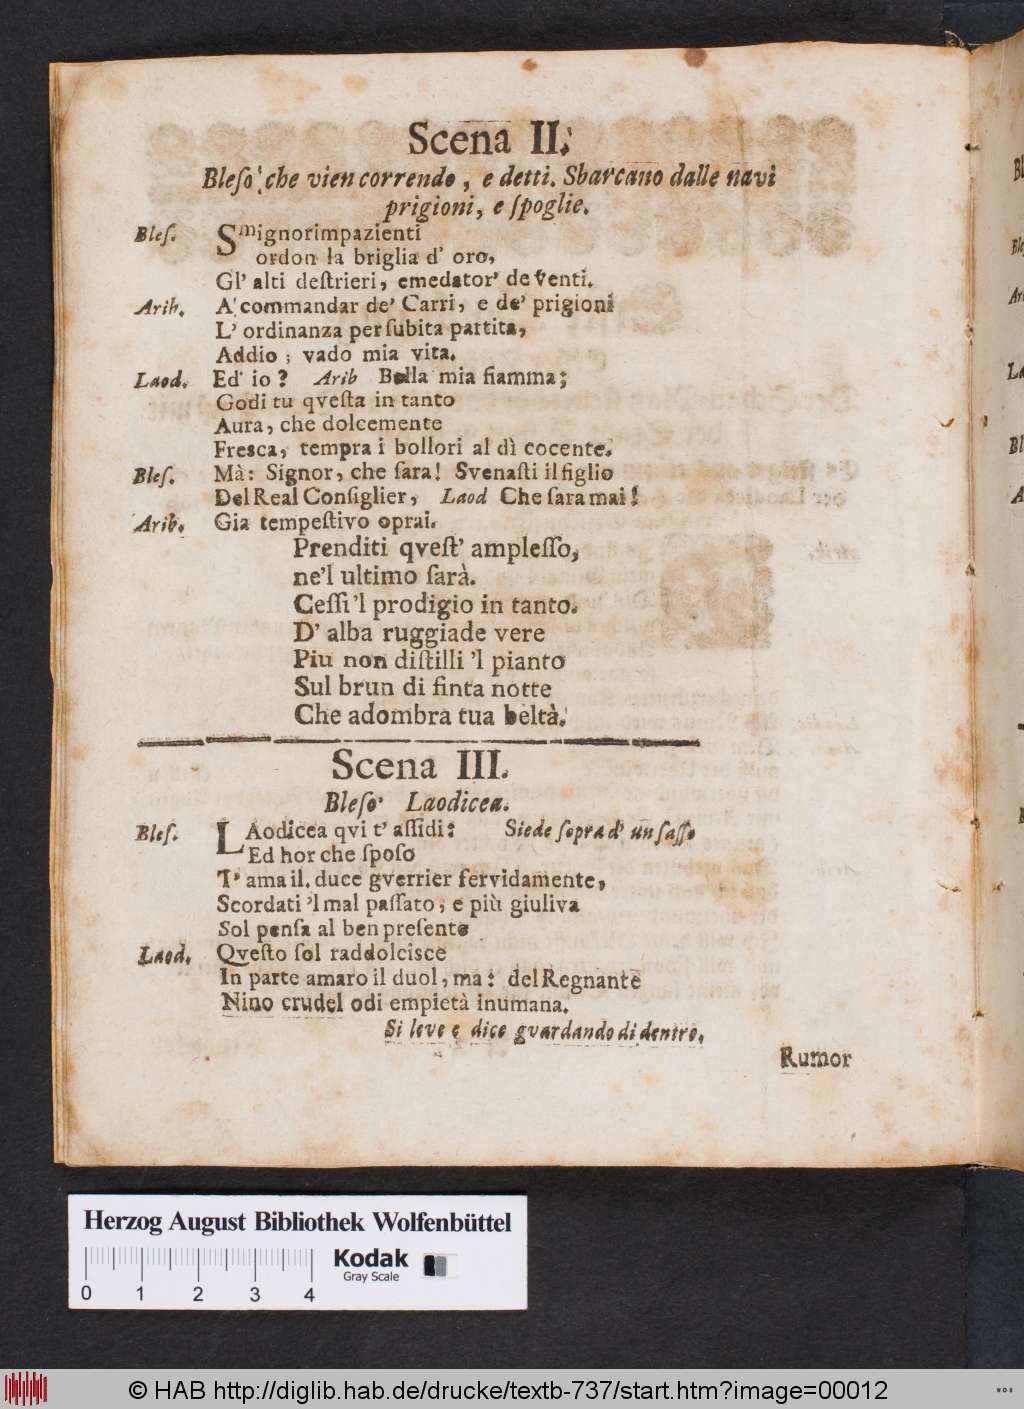 Scena II.
Bleso che vien correndo, e detti. Sbarcano dalle navi
prigioni, e spoglie.
Bles. Smignorimpazienti
ordon la briglia d' oro,
Gl' alti destrieri, emedator' de Venti.
Arib. A commandar de' Carri, e de' prigioni
L' ordinanza per subita partita,
Addio ; vado mia vita.
Laod. Ed' io ? Arib Bella mia fiamma;
Godi tu qvesta in tanto
Aura, che dolcemente
Fresca, tempra i bollori al dì cocente.
Bles. Mà: Signor, che sara! Svenasti il figlio
Del Real Consiglier, Laod Che sara mai!
Arib. Gia tempestivo oprai.
Prenditi qvest' amplesso,
ne'l ultimo sarà.
Cessi 'l prodigio in tanto.
D' alba ruggiade vere
Piu non distilli 'l pianto
Sul brun di finta notte
Che adombra tua beltà.
Scena III.
Bleso Laodicea.
Bles. LAodicea qvi t' assidi: Siede sopra d' un sasso
Ed hor che sposo
T' ama il. duce gverrier fervidamente,
Scordati 'l mal passato, e più giuliva
Sol pensa al ben presente
Laod. Qvesto sol raddolcisce
In parte amaro il duol, ma: del Regnante
Nino crudel odi empietà inumana.
Si leve e dice gvardando di dentro.
Rumor
Herzog August Bibliothek Wolfenbüttel
Kodak
Gray Scale
0 1 2 3 4
© HAB http://diglib.hab.de/drucke/textb-737/start.htm?image=00012